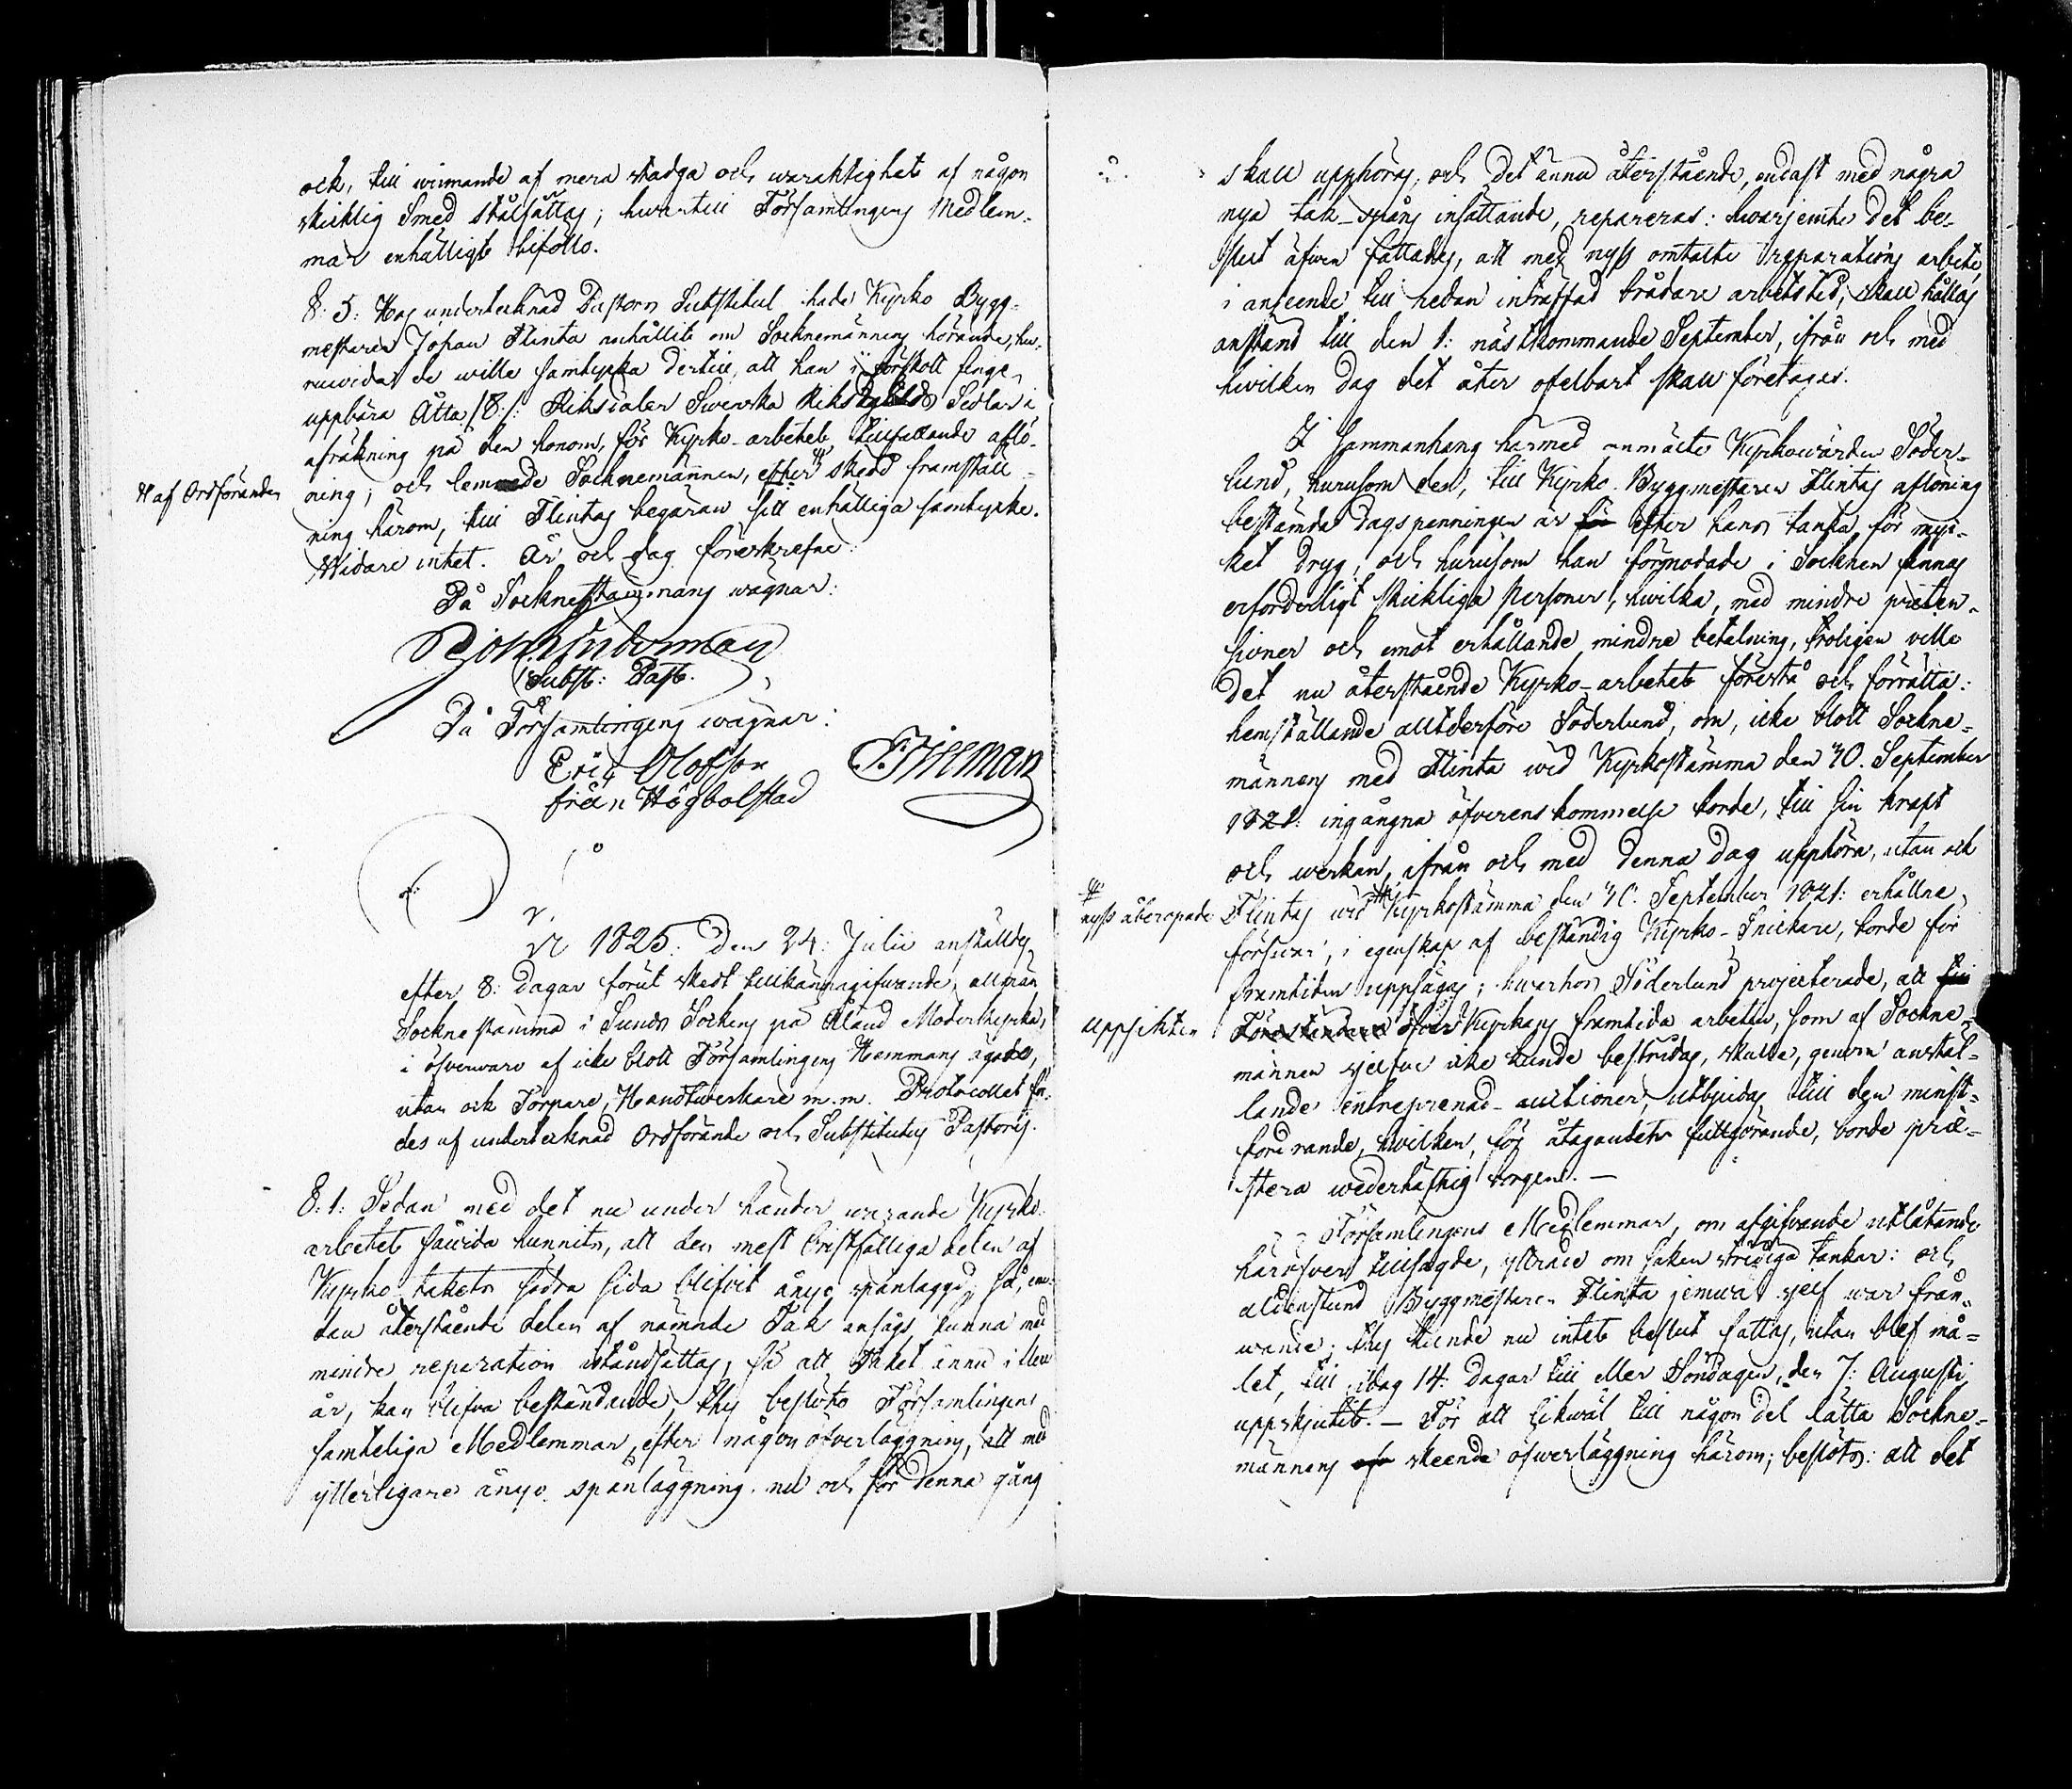 ock, till winnande af mera stadga och waraktighet af någon
skicklig Smed stålsättas; hwartill Församlingens Medlem-
mar enhälligt biföllo.
§: 5: Hos undertecknad Pastors Substitut hade Kyrko Bygg-
mästaren Johan Flinta anhållit om Socknemännens hörande, hu-
ruwida de wille samtycka dertill, att han i förskott finge
uppbära Åtta /:8:/ Riksdaler Swenska Riksgälds Sedlar i
afräkning på den honom, för Kyrko-arbetet tillfallande aflö-
ning; och lemnade Socknemännen, efter skedd framställ-
# af Ordföranden
ning härom, till Flintas begäran sitt enhälliga samtycke.
Widare intet. År och dag föreskrefne:
På Sockne Stämmans wägnar:
Subst: Past.
På Församlingens wägnar:
Eric Olofsson
från Högbolstad
År 1825: Den 24: Julii anställdes
efter 8: dagar förut skedt tillkännagifwande, allmän
Sockne stämma i Sunds Sockens på Åland Moderkyrka,
i öfverwaro af icke blott Församlingens Hemmans ägare,
utan ock Torpare, Handtwerkare m.m. Protocollet för-
des af undertecknad Ordförande och Substitutus Pastoris.
§: 1: Sedan med det nu under händer warande Kyrko-
arbetet såwida hunnits, att den mest bristfälliga delen af
Kyrko takets södra sida blifvit ånyo spånlaggd, så, em-
dan återstående delen af nämnde Tak ansågs kunna med
mindre reperation iståndsättas, så att Taket ännu i flere
år, kan blifva beståndande, thy beslöto Församlingens
samteliga Medlemmar, efter någon öfverläggning, att med
ytterligare ånyo spånläggning nu och för denna gång
skall upphöras, och det ännu återstående, endast med några
nya tak-spåns insättande, repareras: hwarjemte det be-
slut äfwen fattades, att med nyss omtalte reparations arbete,
i anseende till redan inträffad brådare arbetstid, skall hållas
anstånd till den 1: nästkommande September, ifrån och med
hwilken dag det åter ofelbart skall företagas.
I sammanhang härmed anmälte Kyrkowärden Söder-
lund, hurusom den, till Kyrko-Byggmestaren Flintas aflöning
bestämde dagspenningen är för efter hans tanka för myc-
ket dryg, och hurusom han förmodade i Socknen finnas
erforderligt skickliga Personer, hwilka, med mindre præten-
sioner och emot erhållande mindre betalning, troligen ville
det nu återstående Kyrko-arbetet förestå och förrätta:
hemställande alltderföre Söderlund, om, icke blott Sockne-
männens med Flinta wid Kyrkostämma den 30. September
1821: ingångna öfverenskommelse borde, till sin kraft
och werkan, ifrån och med denna dag upphöra, utan ock
nyss åberopade
Flintas wid Kyrkostämma den 30. September 1821: erhållne
förswar, i egenskap af beständig Kyrko-Snickare, borde för
framtiden uppsägas; hwarhos Söderlund projecterade, att
uppsikten
Föreståndare öfwer Kyrkans framtida arbeten, som af Sockne-
männen sjelfve icke kunde bestridas, skulle, genom anstäl-
lande entreprenad-auctioner, utbjudas till den minst-
fordrande, hwilken, för åtagandets fullgörande, borde præ-
stera wederhäftig borgen. —
Församlingens Medlemmar, om afgifvande utlåtande
häröfver tillsagde, yttrade om saken stridiga tankar: och
aldenstund Byggmästaren Flinta jemwäl sjelf war från-
warande, thy kunde nu intet beslut fattas, utan blef må-
let, till idag 14: dagar till eller Söndagen den 7: Augusti
uppskjutit. — För att likwäl till någon del lätta Sockne-
männens skeende öfwerläggning härom; beslöts: att det